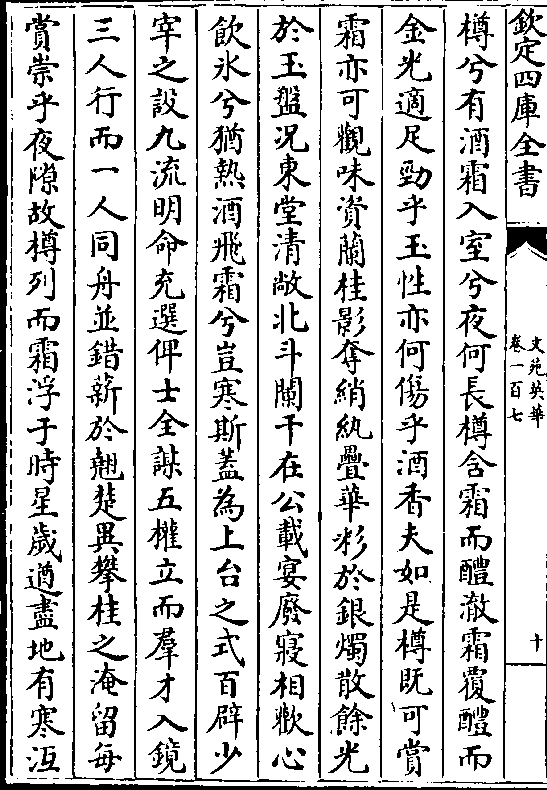 欽定四庫全書
文苑英華
卷一百七
十
樽兮有酒霜入室兮夜何長樽含霜而醴澈霜覆醴而
金光適足勁乎玉性亦何傷乎酒香夫如是樽既可賞
霜亦可觀味資蘭桂影奪綃紈疊華彩於銀燭散餘光
於玉盤況東堂清敞北斗闌干在公載宴廢寢相歡心
飲氷兮猶熱酒飛霜兮豈寒斯蓋為上台之式百辟少
宰之設九流明命充選俾士全謀五權立而羣才入鏡
三人行而一人同舟並錯薪於翹楚異攀桂之淹留每
賞崇乎夜隙故樽列而霜浮于時星歲遒盡地有寒沍